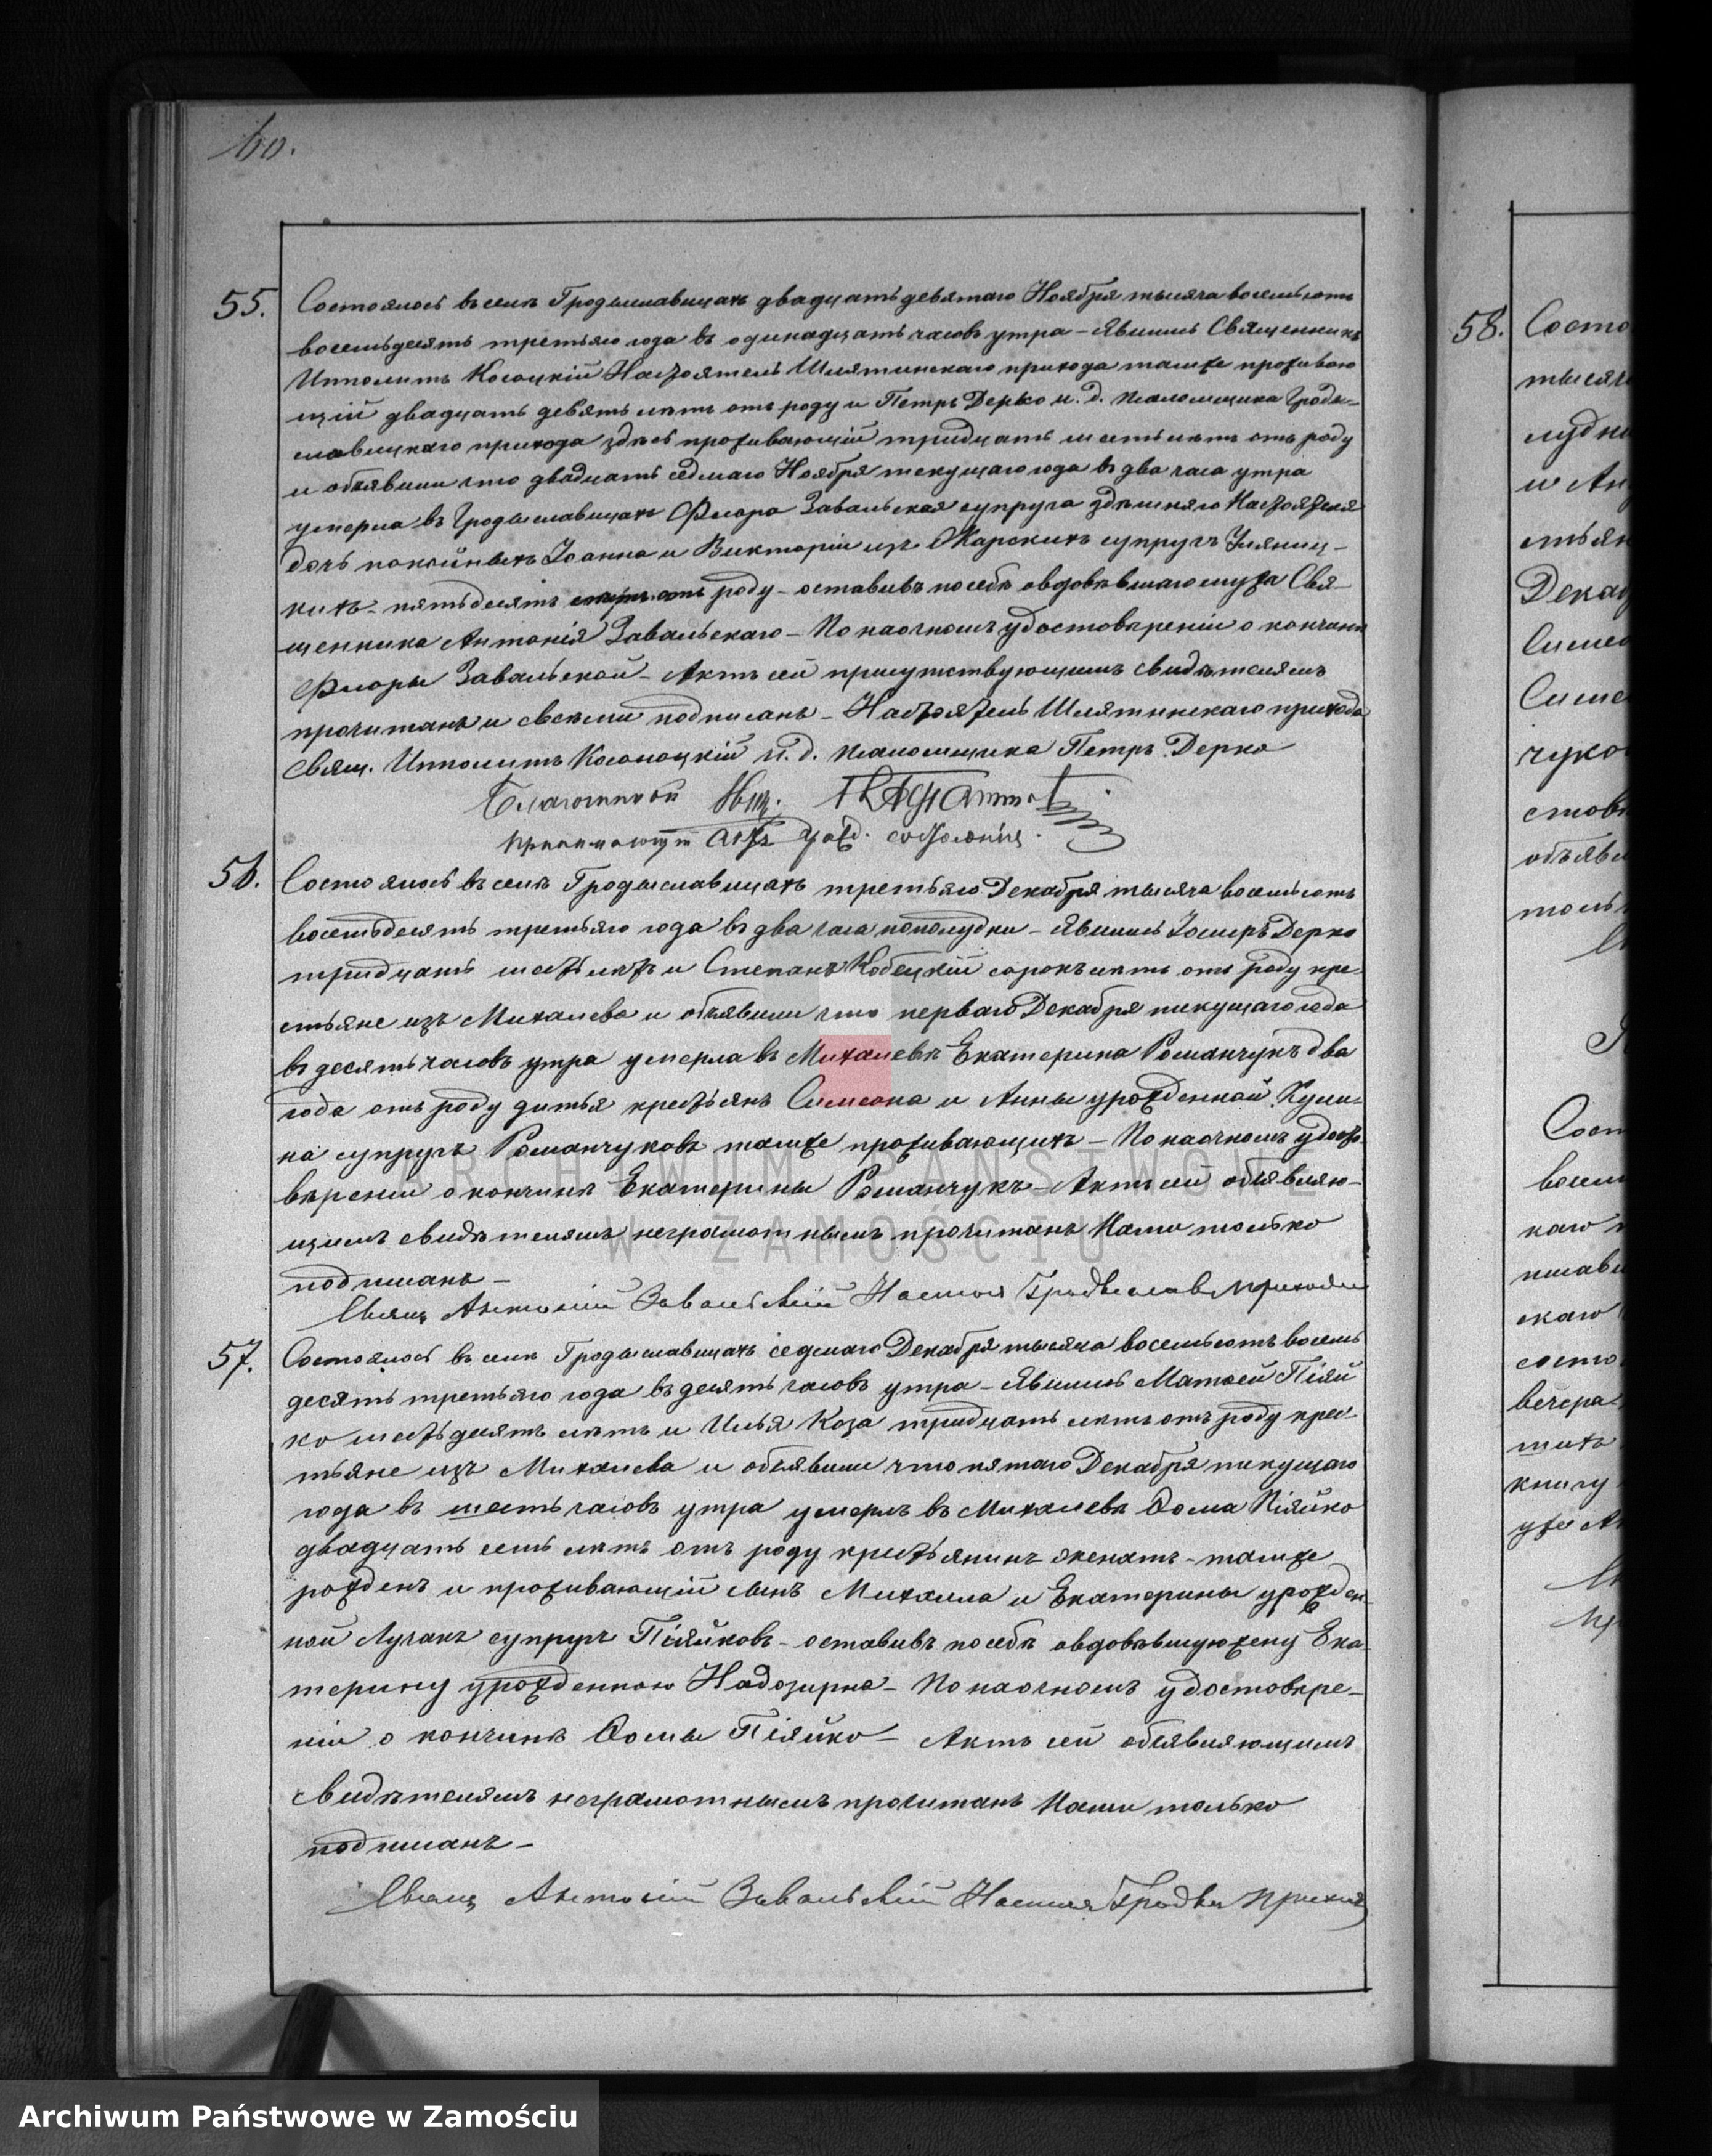 60.
55. Состоялось въ селѣ Гродыславицахъ двадцать девятаго Ноября тысяча восемьсотъ
восемьдесятъ третьяго года въ одинадцать часовъ утра – Явились Священникъ
Ипполитъ Косоноцкій Настоятель Шлятинскаго прихода тамже проживаю
щій двадцать девять лѣтъ отъ роду и Петръ Дерко и. д. псаломщика Гроды-
славицкаго прихода здѣсь проживающій тридцать шесть лѣтъ отъ роду
и объявили что двадцать седмаго Ноября текущаго года въ два часа утра
умерла въ Гродыславицахъ Флора Завальская супруга здѣшняго Настоятеля
дочь покойныхъ Іоанна и Викторіи изъ Жарскихъ супругъ Уляниц-
кихъ – пятьдесятъ отъ роду – оставивъ по себѣ овдовѣвшаго мужа Свя-
щенника Антонія Завальскаго – По наочномъ удостовѣреніи о кончинѣ
Флоры Завальской – Актъ сей присутствующимъ свидѣтелямъ
прочитанъ и свеими подписанъ – Настоятель Шлятинскаго прихода
свящ. Ипполитъ Косоноцкій И. д. псаломщика Петръ Дерко
Благочинный
актъ гражд. состоянія.
56. Состоялось въ селѣ Гродыславицахъ третьяго Декабря тысяча восемьсотъ
восемьдесятъ третьяго года въ два часа пополудни – Явились Іосифъ Дерко
тридцать шесть лѣтъ и Степанъ Кобецкій сорокъ лѣтъ отъ роду кре-
стьяне изъ Михалева и объявили что перваго Декабря текущаго года
въ десять часовъ утра умерла въ Михалевѣ Екатерина Романчукъ два
года отъ роду дитья крестьянъ Симеона и Анны урожденной Кули-
на супругъ Романчуковъ тамже проживающихъ – По наочномъ удосто-
вѣреніи о кончинѣ Екатерины Романчукъ – Актъ сей объявляю-
щимъ свидѣтелямъ неграмотнымъ прочитанъ Нами только
подписанъ –
Свящ Антоній Завальскій Настоя Гродыславиц прихода
57. Состоялось въ селѣ Гродыславицахъ седмаго Декабря тысяча восемьсотъ восемь
десятъ третьяго года въ десять часовъ утра – Явились Матѳей Піяй
ко шестьдесятъ лѣтъ и Илья Коза тридцать лѣтъ отъ роду крес-
тьяне изъ Михалева и объявили что пятаго Декабря текущаго
года въ шесть часовъ утра умеръ въ Михалевѣ Ѳома Піяйко
двадцать семь лѣтъ отъ роду крестьянинъ женатъ – тамже
рожденъ и проживающій сынъ Михаила и Екатерины урожден-
ной Лучакъ супругъ Піяйковъ – оставивъ по себѣ овдовѣвшую жену Ека-
терину урожденною Надозирна – По наочномъ удостовѣре-
ніи о кончинѣ Ѳомы Піяйко – Актъ сей объявляющимъ
свидѣтелямъ неграмотнымъ прочитанъ Нами только
подписанъ –
Свящ Антоній Завальскій Настоя Гродыс прихода
58. Состо
Декаб
Симео
Симе
чуко
вечера
книгу
ARCHIWUM PAŃSTWOWE
W ZAMOŚCIU
Archiwum Państwowe w Zamościu